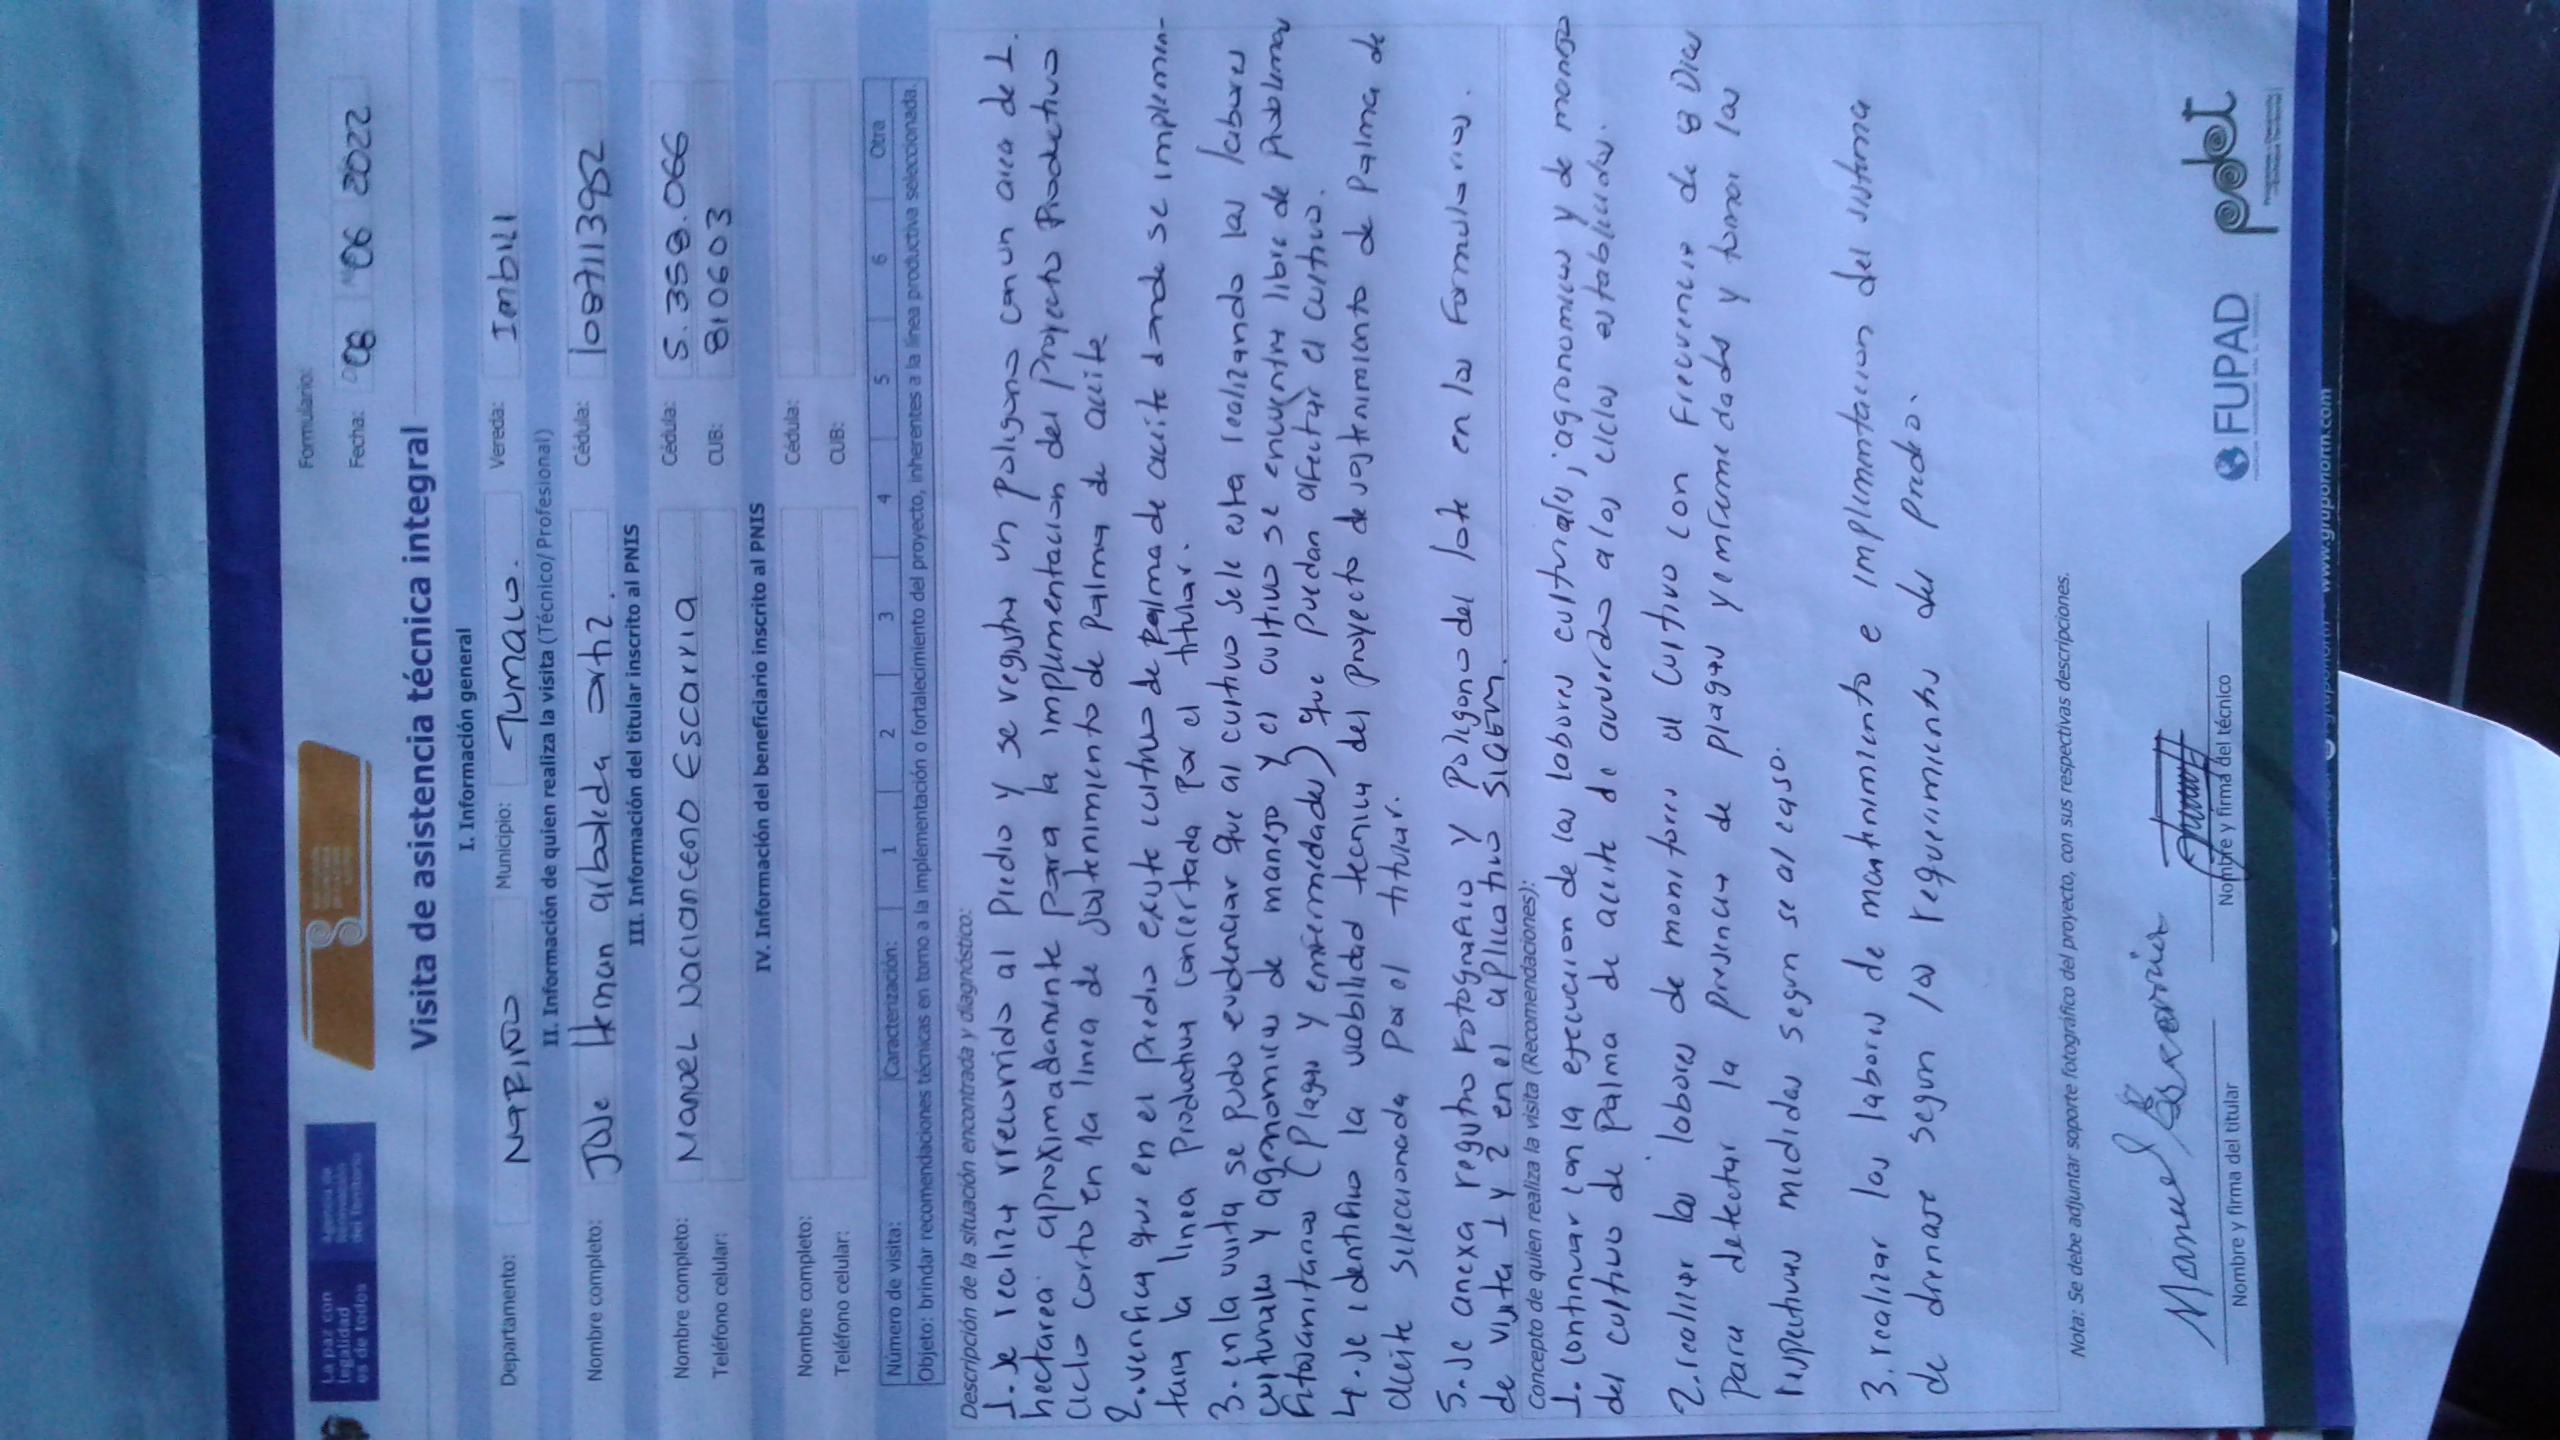 La paz con
legalidad
es de todos
Agencia de
Renovación
del Territorio
Formulario:
Fecha: 08 06 2022
Visita de asistencia técnica integral
I. Información general
Departamento: NARIÑO Municipio: TUMACO. Vereda: Imbili
II. Información de quien realiza la visita (Técnico/ Profesional)
Nombre completo: José Hernan arboleda ortiz. Cédula: 1087113952
III. Información del titular inscrito al PNIS
Nombre completo: MANUEL NACIANCENO ESCARRIA Cédula: 5.358.066
Teléfono celular: CUB: 810603
IV. Información del beneficiario inscrito al PNIS
Nombre completo: Cédula:
Teléfono celular: CUB:
Número de visita: Caracterización: 1 2 3 4 5 6 Otra
Objeto: brindar recomendaciones técnicas en torno a la implementación o fortalecimiento del proyecto, inherentes a la línea productiva seleccionada.
Descripción de la situación encontrada y diagnóstico:
1. Se realiza rrecorrido al Predio y se registra un poligono con un area de 1.
hectarea aproximadamente para la implementación del Proyecto Productivo
ciclo corto en la linea de sostenimiento de Palma de aceite
2. verifica que en el predio existe cultivo de palma de aceite donde se implemen-
tara la linea Productiva concertada por el titular.
3. en la visita se pudo evidenciar que al cultivo se le esta realizando las labores
culturales y agronomicas de manejo y el cultivo se encuentra libre de Problemas
fitosanitarios (Plagas y enfermedades) que puedan afectar el cultivo.
4. se identifico la viabilidad tecnica del proyecto de sostenimiento de Palma de
aceite seleccionada por el titular.
5. se anexa registro fotografico y poligono del lote en los formularios
de visita 1 y 2 en el aplicativo SIGEM.
Concepto de quien realiza la visita (Recomendaciones):
1. continuar con la ejecucion de las labores culturales, agronomicas y de manejo
del cultivo de Palma de aceite de acuerdo a los ciclos establecidos.
2. realizar las labores de monitoreo al cultivo con frecuencia de 8 Dias
Para detectar la presencia de plagas y enfermedades y tomar las
respectivas medidas segun se al caso.
3. realizar las labores de mantenimiento e implementacion del sistema
de drenase segun los requerimientos del predio.
Nota: Se debe adjuntar soporte fotográfico del proyecto, con sus respectivas descripciones.
Manuel Escarria
Nombre y firma del titular
Nombre y firma del técnico
FUPAD
pdet
www.gruponorm.com